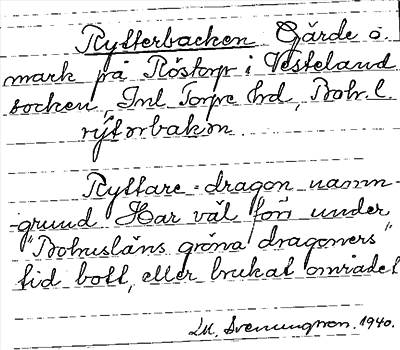 Rytterbacken Gärde o.
mark på Röstorp i Västeland
socken, Inl Torpe hd, Boh. l.
rýtərbakən
Ryttare = dragon namn-
grund Har väl förr under
"Bohusläns gröna dragoners"
tid bott, eller brukat området
Lu. Svenungson. 1940.